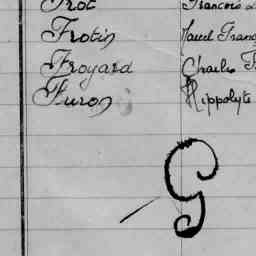 Frot François
Frotin Marcel Franç
Froyard Charles F
Furon Hippolyte
G